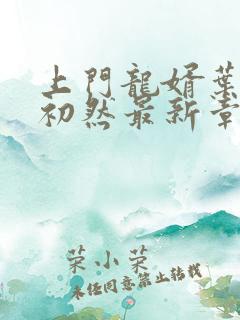 上門龍婿葉
初然最新章
荣小荣
未经同意禁止转载